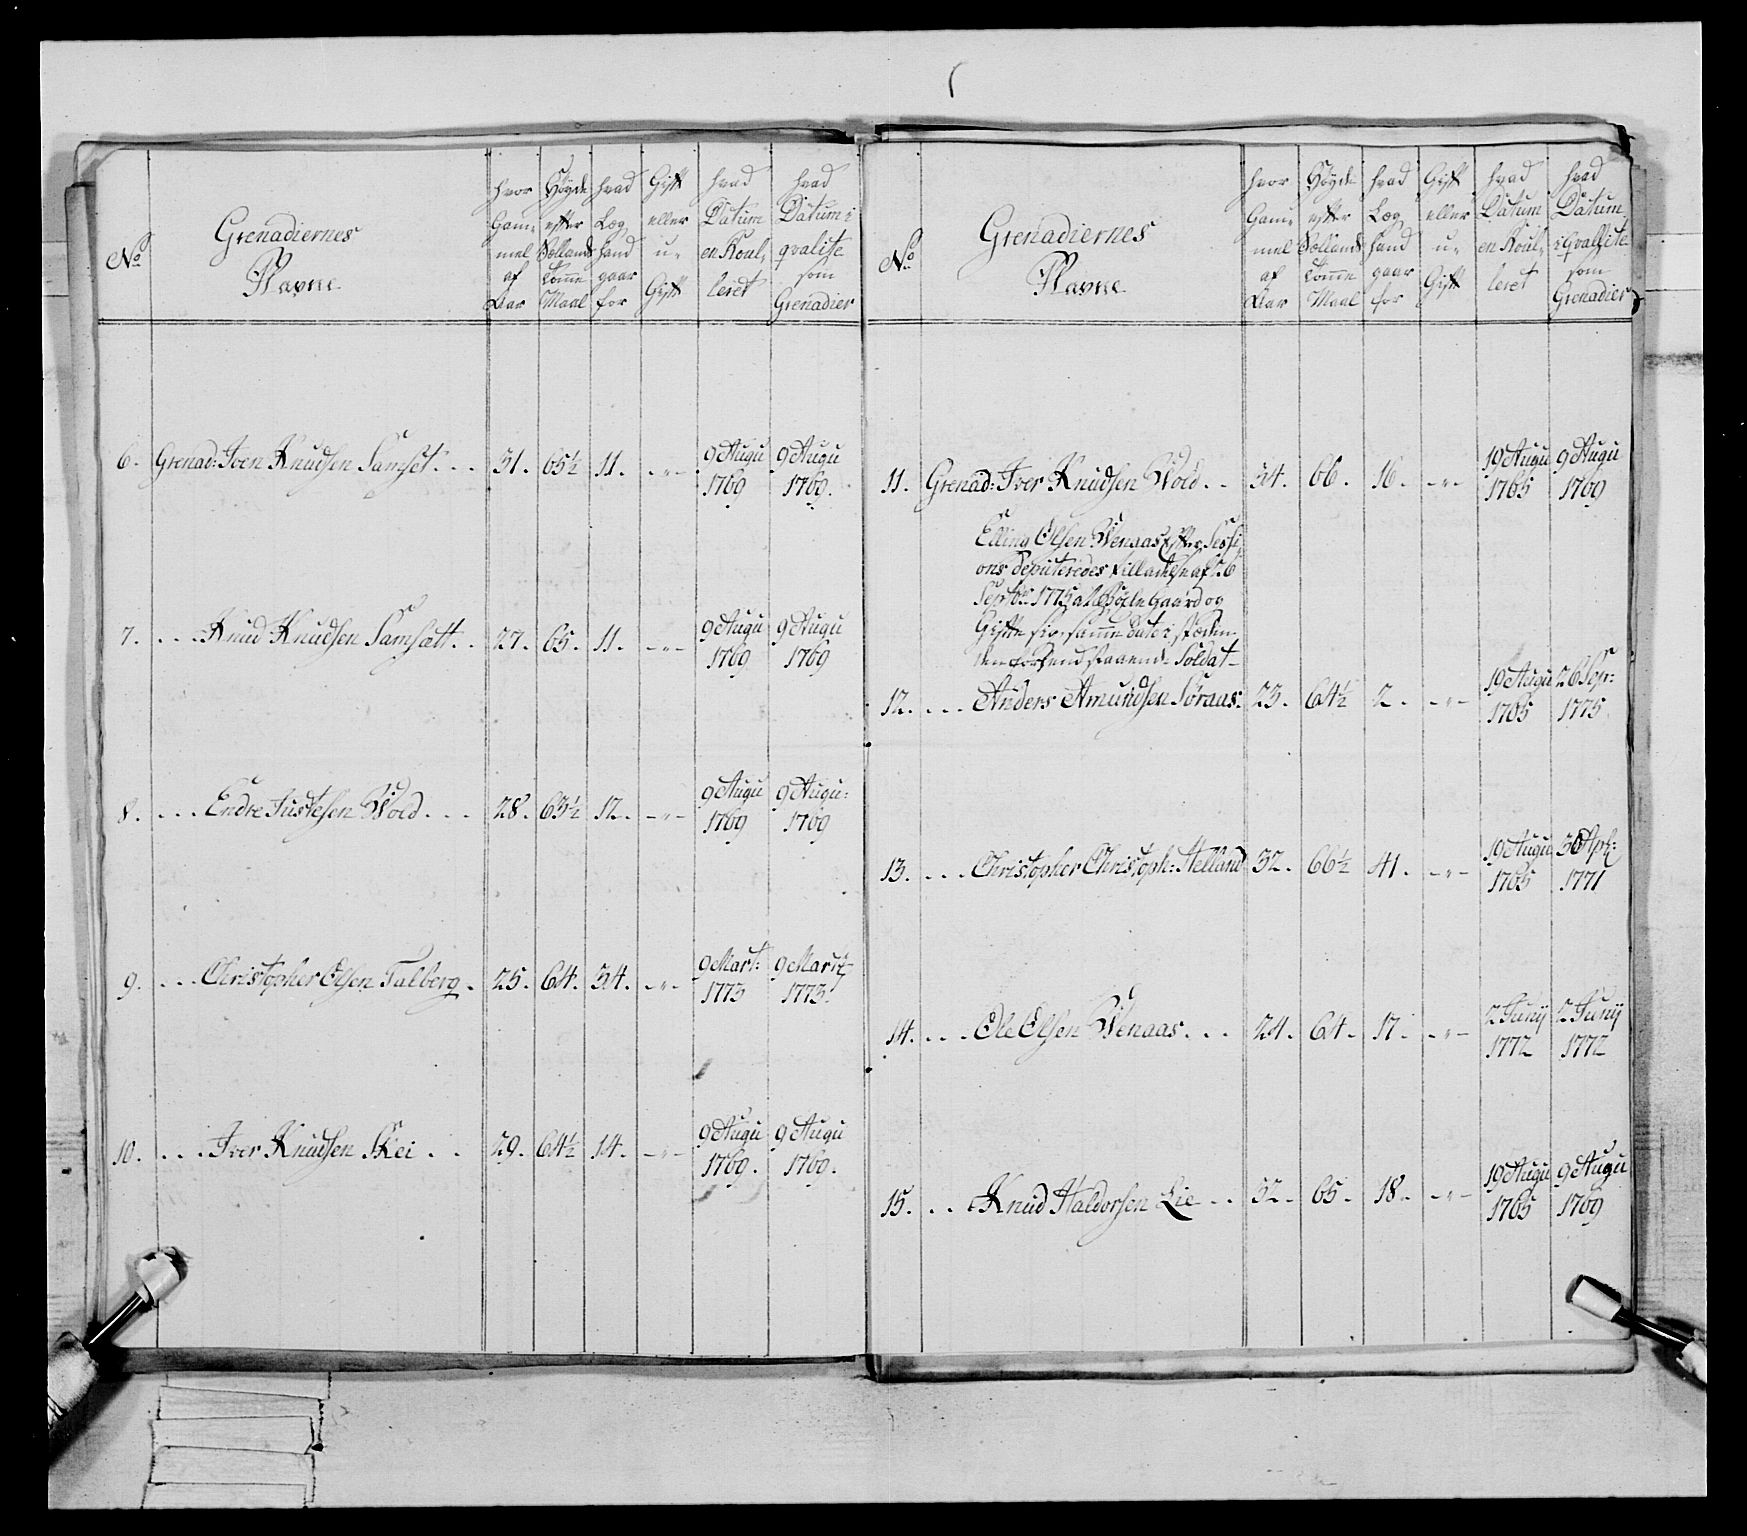 No
Grenadiernes
Navne
hvor Gam- mel af Aar
Höyde efter Sollands Tomme Maal
hvad Læg hand gaar for
Gift eller u- Gift
hvad Datum en Roul- leret
hvad Datum i qvalite som Grenadier
6. Grenad: Iven Knudsen Samset . . . 31. 65½ 11. -"- 9 Augu 1769 9 Augu 1769.
7. . . . Knud Knudsen Samsætt . . 27. 65. 11. -"- 9 Augu 1769 9 Augu 1769
8. . . . Endre Justesen Wold . . . 28. 63½ 12. -"- 9 Augu 1769 9 Augu: 1769
9. . . . Christopher Olsen Talberg . 25. 64. 34. -"- 9 Mart: 1773 9 Martÿ 1773.
10. . . . Iver Knudsen Skei . . 29. 64½ 14. -"- 9 Augu 1769. 9 Augu 1769.
No
Grenadiernes
Navne
hvor Gam- mel af Aar
Höyde efter Sollands Tomme Maal
hvad Læg hand gaar for
Gift eller u- Gift
hvad Datum en Roul- leret
hvad Datum i Qvallite som Grenadier
11. Grenad: Iver Knudsen Wold . . 34. 66. 16. -"- 19 Augu 1765 9 Augu 1769
Elling Olsen Wenaas efter Sessi-
ons deputeredes tilladelse af 26
Septbr 1775 at Gaard og
Gifte sig, samme dato i stæden
Soldat-
12. . . . Anders Amundsen Söraas. 23. 64½ 2. -"- 19 Augu 1765 26 Sepr: 1775.
13. . . . Christopher Christoph: Helland 32. 66½ 41. -"- 19 Augu 1765 30 Apl: 1771
14. . . . Ole Olsen Wenaas . . . 24. 64. 17. -"- 2 Junÿ 1772 2 Junÿ 1772
15. . . Knud Haldorsen Lie . . 32. 65. 18. -"- 19 Augu 1765 9 Augu 1769